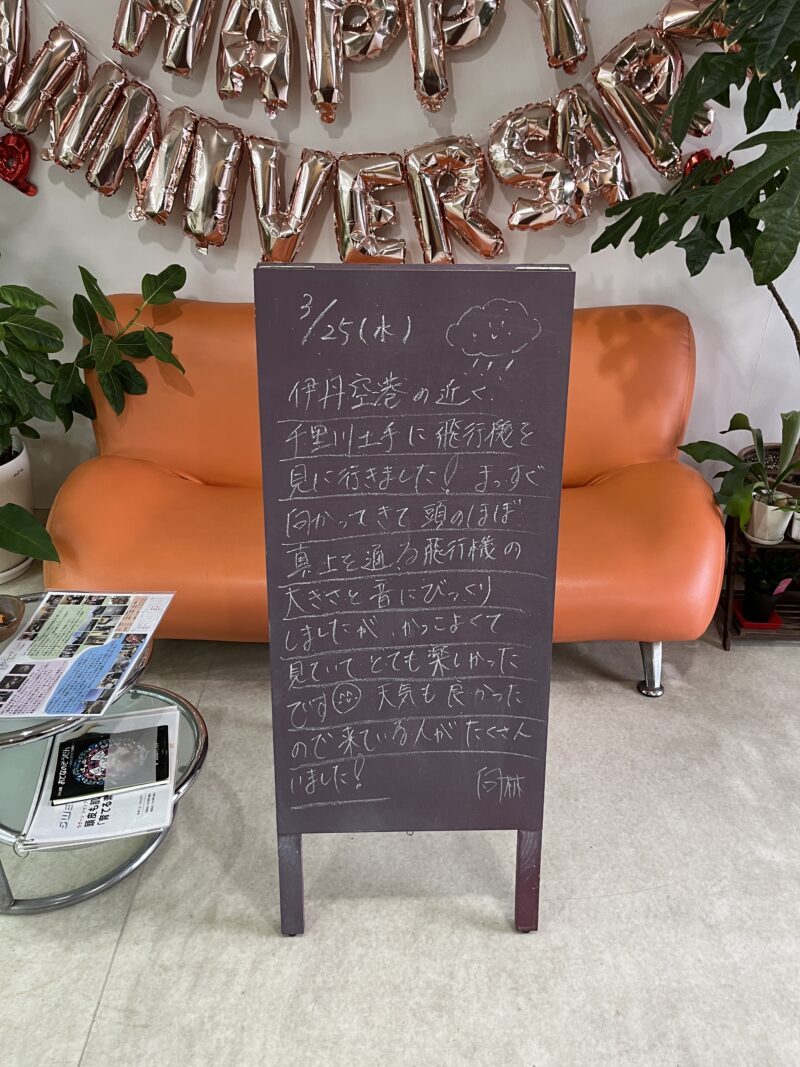 HAPPY
ANNIVERSARY
3/25(水)
伊丹空港の近く、
千里川土手に飛行機を
見に行きました! まっすぐ
向かってきて頭のほぼ
真上を通る飛行機の
大きさと音にびっくり
しましたが、かっこよくて
見ていてとても楽しかった
です 天気も良かった
ので来ている人がたくさん
いました!
おとなのそうだん
頭皮も肌
「育てる